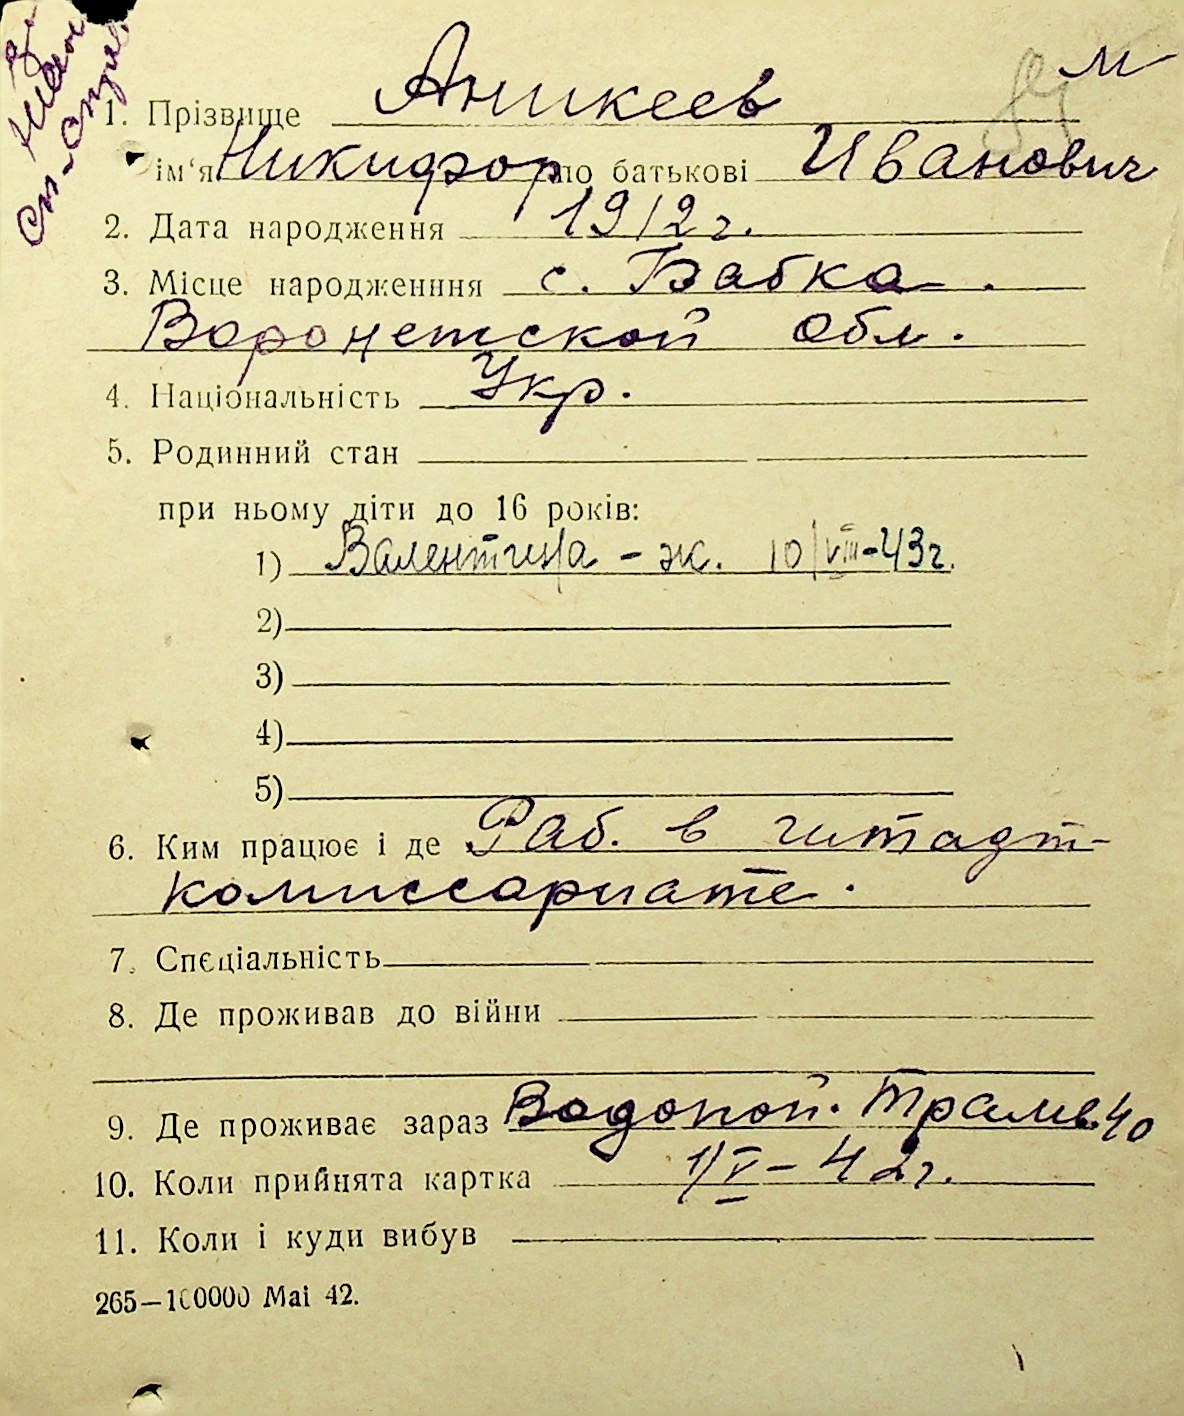 м
1. Прізвище Аникеев
ім'я Никифор по батькові Иванович
2. Дата народження 1912 г.
3. Місце народженння с. Бабка.
Воронежской обл.
4. Національність Укр.
5. Родинний стан
при ньому діти до 16 років:
1) Валентина - ж. 10/VIII-43г.
2)
3)
4)
5)
6. Ким працює і де Раб. в штадт-
комиссариате.
7. Спєціальність
8. Де проживав до війни
9. Де проживає зараз Водопой. Трамв. 40
10. Коли прийнята картка 1/V-42г.
11. Коли і куди вибув
265—100000 Mai 42.